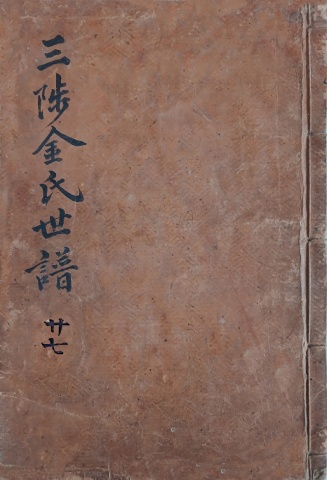 三陟金氏世譜
廿七